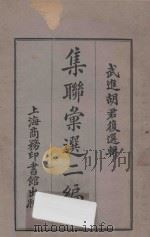 武進胡君復選輯
集聯彙選二編
上海商務印書館出版